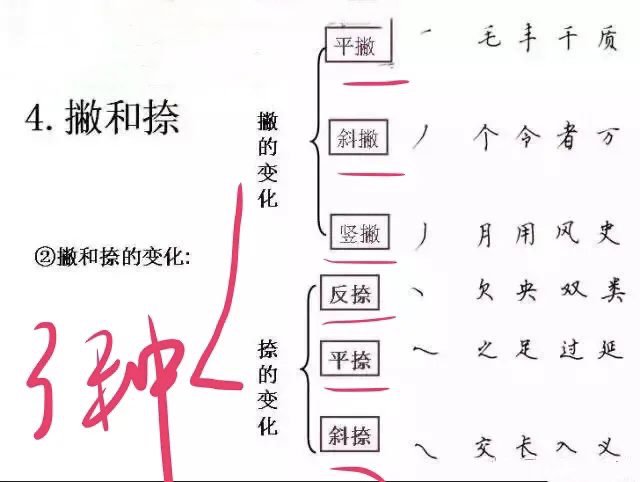 4.撇和捺
②撇和捺的变化:
3种
撇的变化
平撇 ㇒ 毛 丰 千 质
斜撇 丿 个 令 者 万
竖撇 丿 月 用 风 史
捺的变化
反捺 丶 欠 央 双 类
平捺 ㇏ 之 足 过 延
斜捺 ㇏ 交 长 入 义